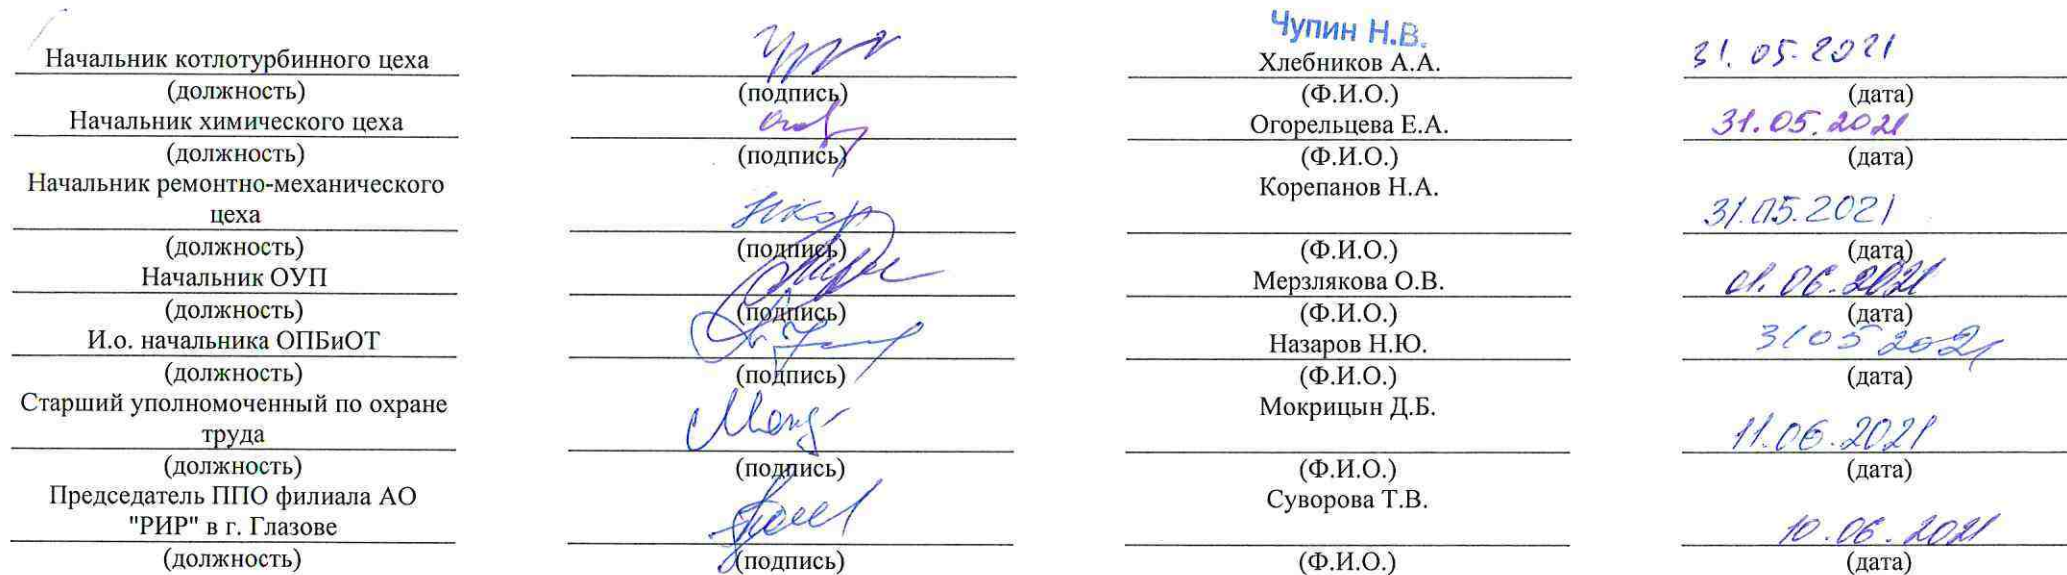 Чупин Н.В.
Начальник котлотурбинного цеха Хлебников А.А. 31.05.2021
(должность) (подпись) (Ф.И.О.) (дата)
Начальник химического цеха Огорельцева Е.А. 31.05.2021
(должность) (подпись) (Ф.И.О.) (дата)
Начальник ремонтно-механического Корепанов Н.А.
цеха 31.05.2021
(должность) (подпись) (Ф.И.О.) (дата)
Начальник ОУП Мерзлякова О.В. 01.06.2021
(должность) (подпись) (Ф.И.О.) (дата)
И.о. начальника ОПБиОТ Назаров Н.Ю. 31 05 2021
(должность) (подпись) (Ф.И.О.) (дата)
Старший уполномоченный по охране Мокрицын Д.Б.
труда 11.06.2021
(должность) (подпись) (Ф.И.О.) (дата)
Председатель ППО филиала АО Суворова Т.В.
"РИР" в г. Глазове 10.06.2021
(должность) (подпись) (Ф.И.О.) (дата)